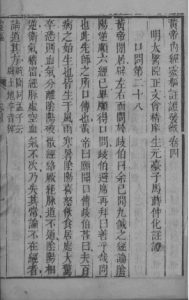 黃帝內經靈樞註證發微卷四
明太醫院正文會稽庠生玄臺子馬蒔仲化註證
口問第二十八
黃帝閒居辟左右而問於岐伯曰余已聞九鍼之經論陰
陽逆順六經已畢願得口問岐伯避席再拜曰善乎哉問
也此先師之所口傳也黃帝曰願聞口傳岐伯答曰夫百
病之始生也皆生于風雨寒暑陰陽喜怒飲食居處大驚
卒恐則血氣分離陰陽破散經絡厥絕脈道不通陰陽相
逆衛氣稽留經脈虛空血氣不次乃失其常論不在經者
請道其方